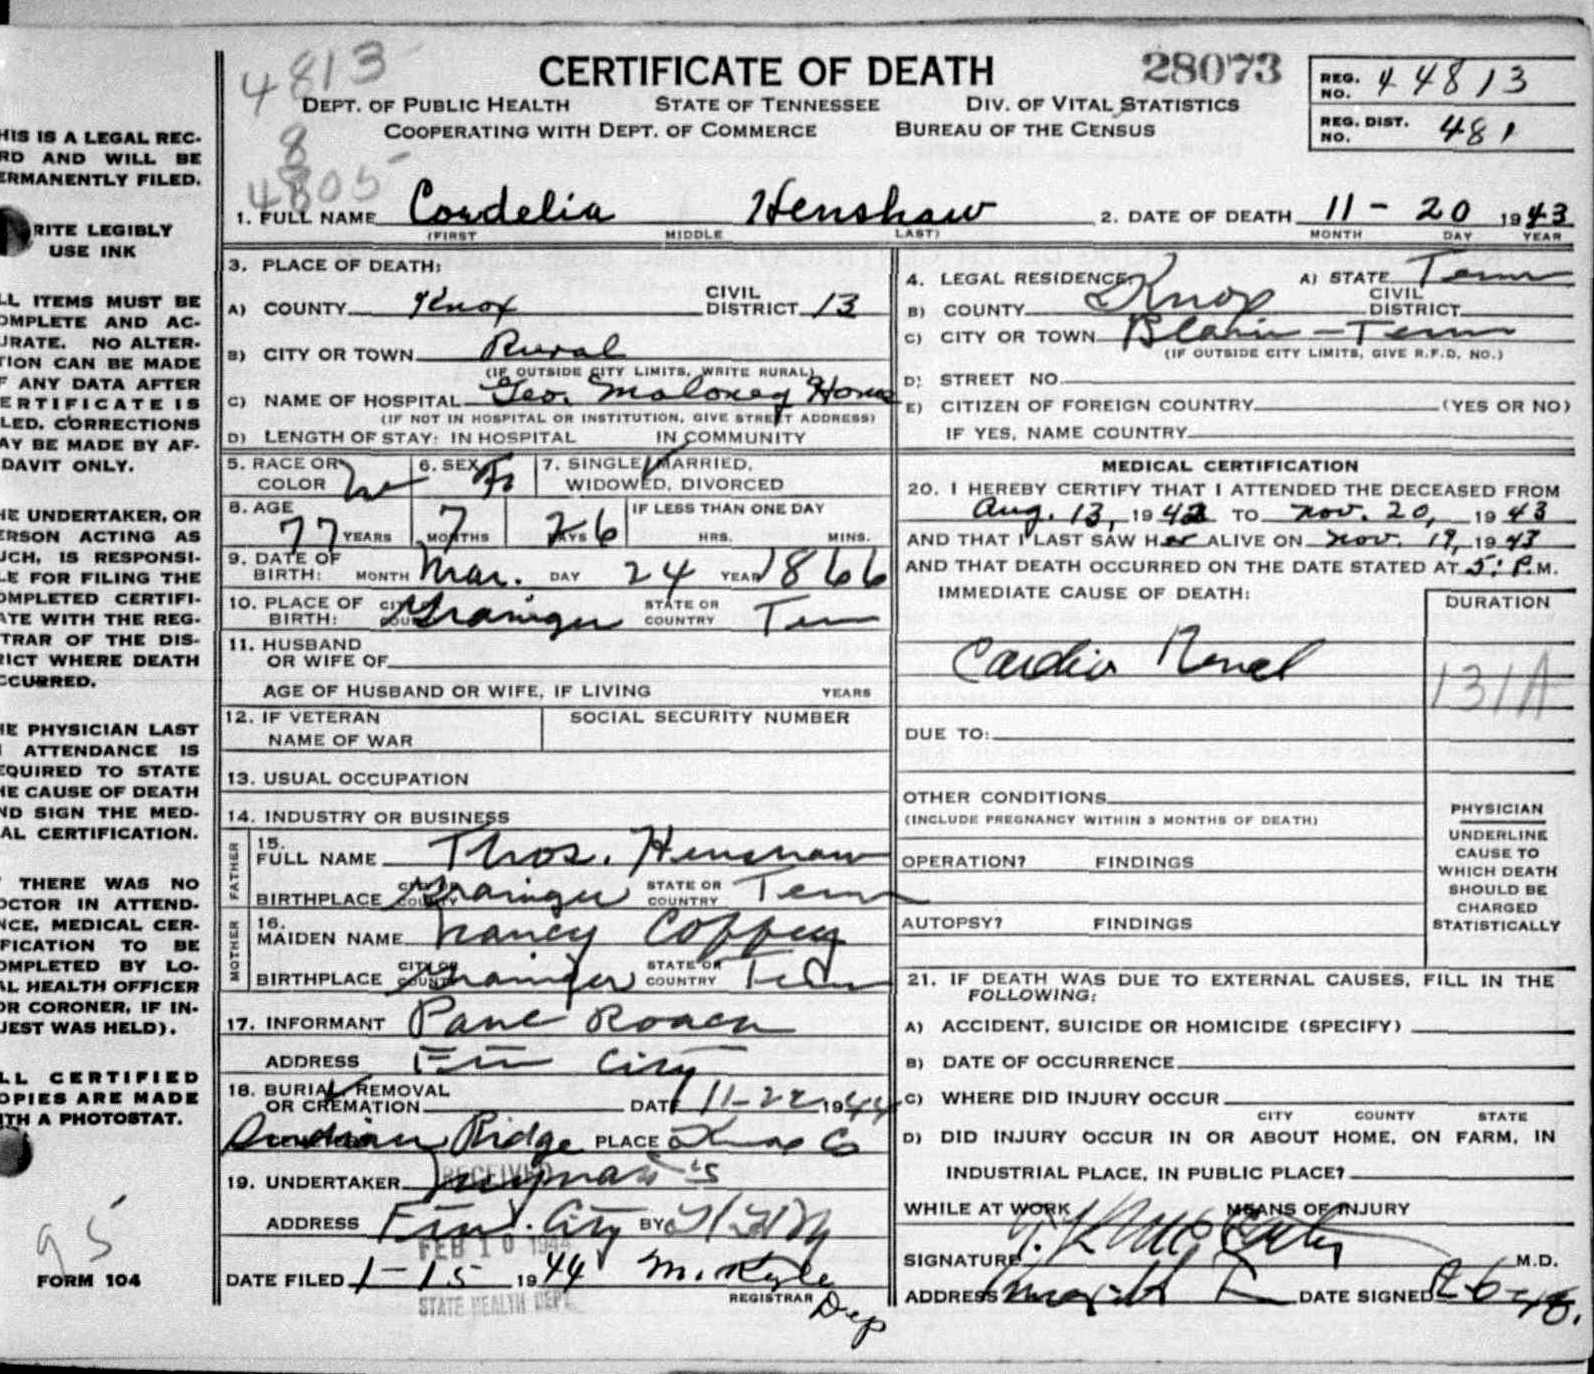 4813
CERTIFICATE OF DEATH
28073
REG. NO. 44813
DEPT. OF PUBLIC HEALTH STATE OF TENNESSEE DIV. OF VITAL STATISTICS
COOPERATING WITH DEPT. OF COMMERCE BUREAU OF THE CENSUS
REG. DIST. NO. 481
8
4805
1. FULL NAME Cordelia Henshaw 2. DATE OF DEATH 11-20 1943
(FIRST MIDDLE LAST) MONTH DAY YEAR
HIS IS A LEGAL REC-
RD AND WILL BE
ERMANENTLY FILED.
RITE LEGIBLY
USE INK
LL ITEMS MUST BE
OMPLETE AND AC-
URATE. NO ALTER-
TION CAN BE MADE
F ANY DATA AFTER
ERTIFICATE IS
LED. CORRECTIONS
AY BE MADE BY AF-
DAVIT ONLY.
HE UNDERTAKER, OR
ERSON ACTING AS
UCH, IS RESPONSI-
LE FOR FILING THE
OMPLETED CERTIFI-
ATE WITH THE REG-
TRAR OF THE DIS-
RICT WHERE DEATH
CCURRED.
HE PHYSICIAN LAST
ATTENDANCE IS
EQUIRED TO STATE
HE CAUSE OF DEATH
ND SIGN THE MED-
AL CERTIFICATION.
THERE WAS NO
OCTOR IN ATTEND-
NCE, MEDICAL CER-
FICATION TO BE
OMPLETED BY LO-
AL HEALTH OFFICER
OR CORONER, IF IN-
UEST WAS HELD).
LL CERTIFIED
OPIES ARE MADE
ITH A PHOTOSTAT.
95
FORM 104
3. PLACE OF DEATH:
A) COUNTY Knox CIVIL DISTRICT 13
B) CITY OR TOWN Rural
(IF OUTSIDE CITY LIMITS, WRITE RURAL)
C) NAME OF HOSPITAL Geo. Maloney Home
(IF NOT IN HOSPITAL OR INSTITUTION, GIVE STREET ADDRESS)
D) LENGTH OF STAY: IN HOSPITAL IN COMMUNITY
5. RACE OR COLOR W 6. SEX F 7. SINGLE, MARRIED, WIDOWED, DIVORCED
8. AGE 77 YEARS 7 MONTHS 26 DAYS IF LESS THAN ONE DAY HRS. MINS.
9. DATE OF BIRTH: MONTH Mar. DAY 24 YEAR 1866
10. PLACE OF BIRTH: CITY OR COUNTY Grainger STATE OR COUNTRY Tenn
11. HUSBAND OR WIFE OF
AGE OF HUSBAND OR WIFE, IF LIVING YEARS
12. IF VETERAN NAME OF WAR SOCIAL SECURITY NUMBER
13. USUAL OCCUPATION
14. INDUSTRY OR BUSINESS
FATHER
15. FULL NAME Thos. Henshaw
BIRTHPLACE CITY OR COUNTY Grainger STATE OR COUNTRY Tenn
MOTHER
16. MAIDEN NAME Nancy Coffey
BIRTHPLACE CITY OR COUNTY Grainger STATE OR COUNTRY Tenn
17. INFORMANT Roach
ADDRESS City
18. BURIAL, REMOVAL OR CREMATION DATE 11-22 1944
Indian Ridge PLACE Knox Co
19. UNDERTAKER
RECEIVED
ADDRESS City BY
FEB 10 1944
DATE FILED 1-15 1944 M. Kyle
REGISTRAR
Dep
STATE HEALTH DEPT.
4. LEGAL RESIDENCE: A) STATE Tenn
B) COUNTY Knox CIVIL DISTRICT
C) CITY OR TOWN Blain - Tenn
(IF OUTSIDE CITY LIMITS, GIVE R.F.D. NO.)
D) STREET NO.
E) CITIZEN OF FOREIGN COUNTRY (YES OR NO)
IF YES, NAME COUNTRY
MEDICAL CERTIFICATION
20. I HEREBY CERTIFY THAT I ATTENDED THE DECEASED FROM
Aug. 13, 1942 TO Nov. 20, 1943
AND THAT I LAST SAW Her ALIVE ON Nov. 19, 1943
AND THAT DEATH OCCURRED ON THE DATE STATED AT 5: P.M.
IMMEDIATE CAUSE OF DEATH: DURATION
Cardio Renal
131A
DUE TO:
OTHER CONDITIONS
(INCLUDE PREGNANCY WITHIN 3 MONTHS OF DEATH)
OPERATION? FINDINGS
AUTOPSY? FINDINGS
PHYSICIAN
UNDERLINE
CAUSE TO
WHICH DEATH
SHOULD BE
CHARGED
STATISTICALLY
21. IF DEATH WAS DUE TO EXTERNAL CAUSES, FILL IN THE
FOLLOWING:
A) ACCIDENT, SUICIDE OR HOMICIDE (SPECIFY)
B) DATE OF OCCURRENCE
C) WHERE DID INJURY OCCUR
CITY COUNTY STATE
D) DID INJURY OCCUR IN OR ABOUT HOME, ON FARM, IN
INDUSTRIAL PLACE, IN PUBLIC PLACE?
WHILE AT WORK MEANS OF INJURY
SIGNATURE M.D.
ADDRESS DATE SIGNED